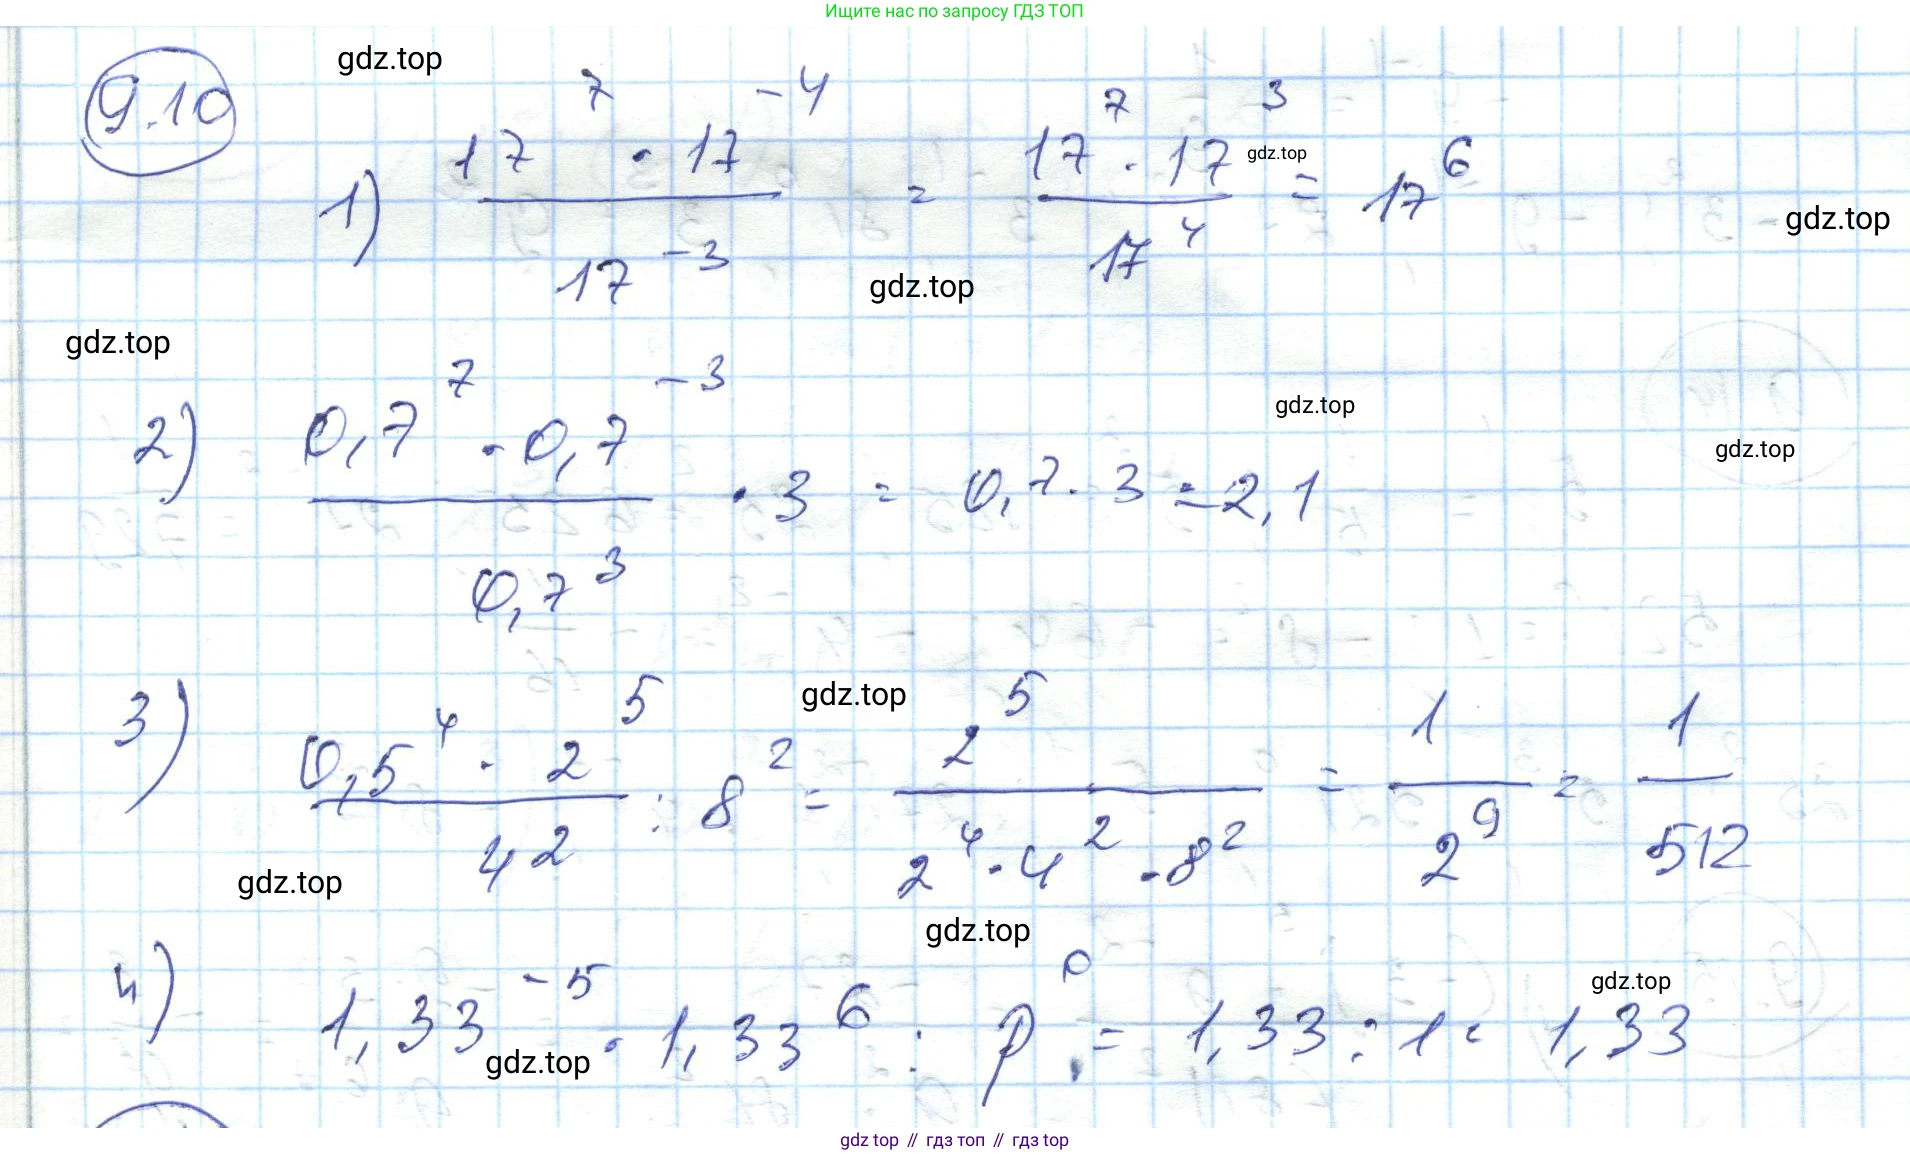 Ищите нас по запросу ГДЗ ТОП
gdz.top
9.10
1) \frac{17^7 · 17^{-4}}{17^{-3}} = \frac{17^7 · 17^3}{17^4} = 17^6
gdz.top
gdz.top
gdz.top
gdz.top
2) \frac{0,7^7 · 0,7^{-3}}{0,7^3} · 3 = 0,7 · 3 = 2,1
gdz.top
gdz.top
3) \frac{0,5^4 · 2^5}{4^2} : 8^2 = \frac{2^5}{2^4 · 4^2 · 8^2} = \frac{1}{2^9} = \frac{1}{512}
gdz.top
gdz.top
gdz.top
4) 1,33^{-5} · 1,33^6 : p^0 = 1,33 : 1 = 1,33
gdz.top
gdz.top
gdz top // гдз топ // гдз top